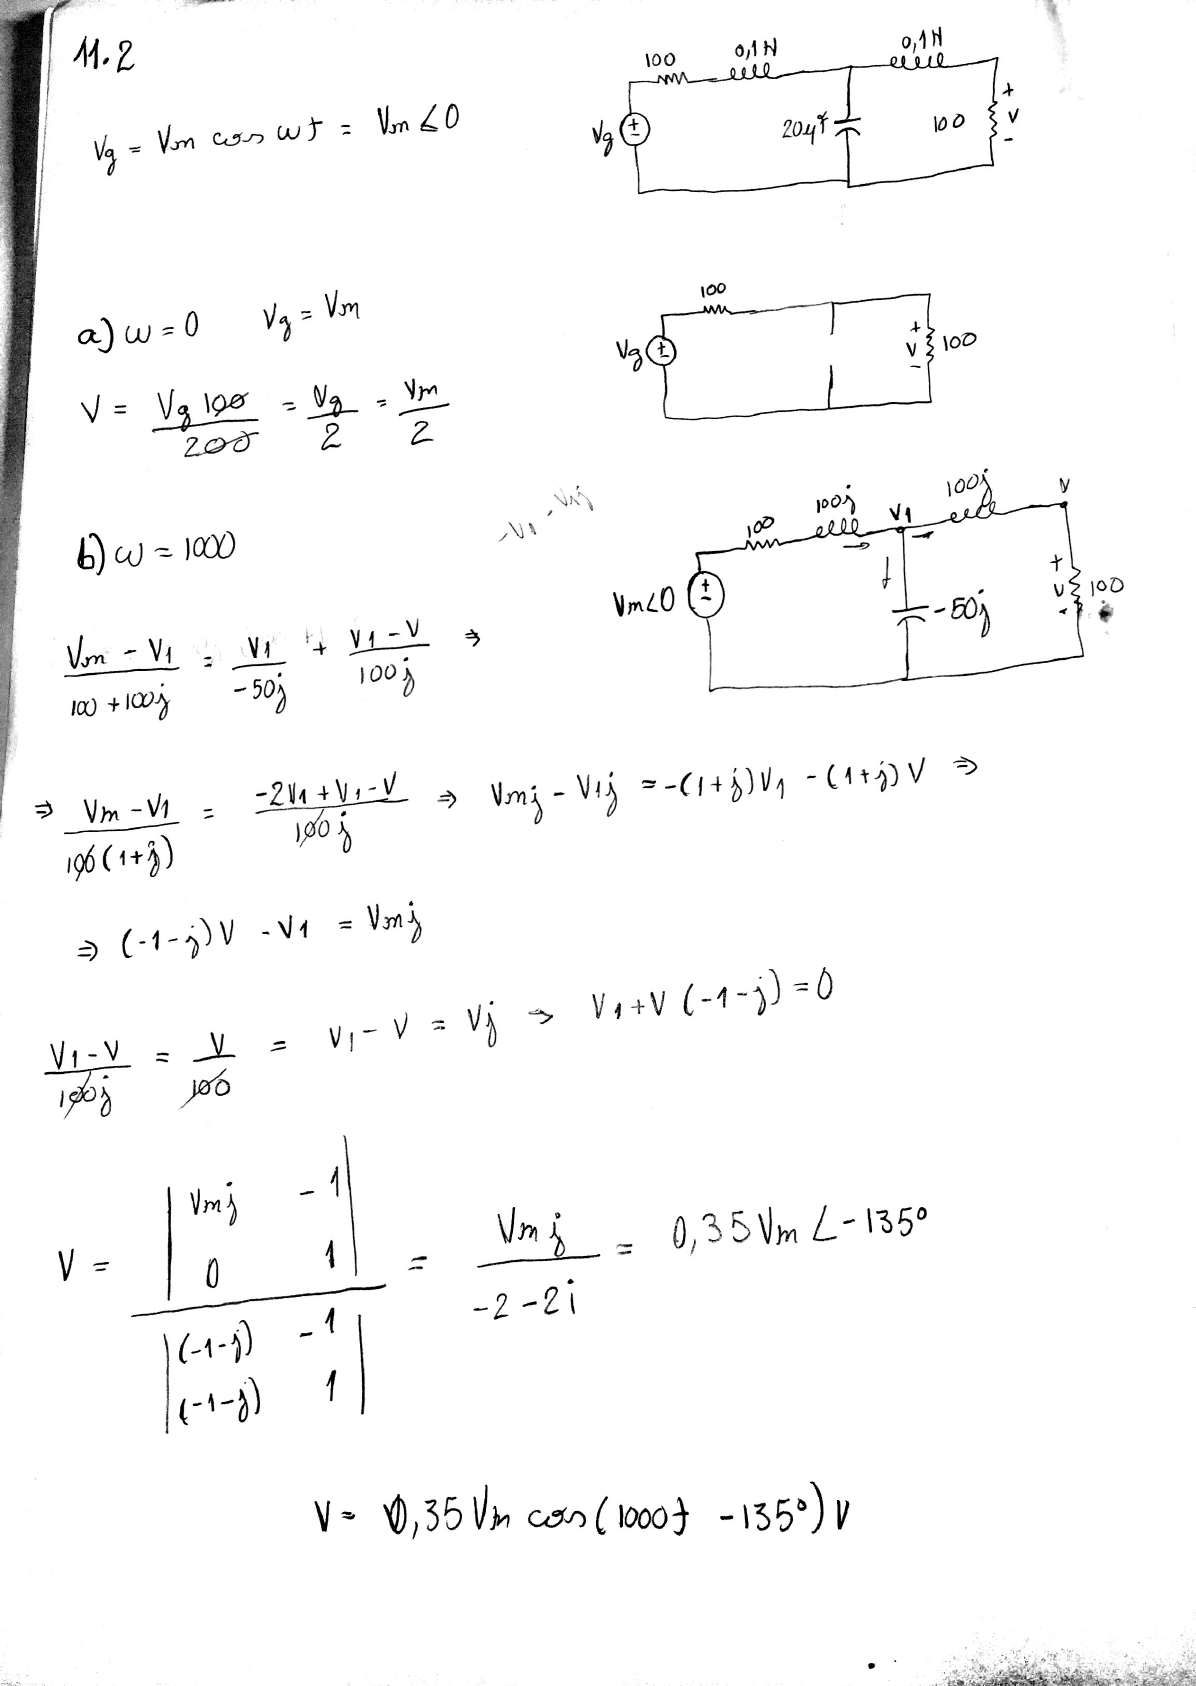 11.2
100 0,1H 0,1H
Vg = Vm cos ωt = Vm∠0
Vg + - 20μF 100 + V -
a) ω = 0 Vg = Vm
100
Vg + - + V - 100
V = Vg 100 / 200 = Vg / 2 = Vm / 2
b) ω = 1000
100 100j V1 100j V
Vm∠0 + - -50j + V - 100
Vm - V1 / 100 + 100j = V1 / -50j + V1 - V / 100j ⇒
⇒ Vm - V1 / 100(1+j) = -2V1 + V1 - V / 100j ⇒ Vmj - V1j = -(1+j)V1 - (1+j)V ⇒
⇒ (-1-j)V - V1 = Vmj
V1 - V / 100j = V / 100 = V1 - V = Vj ⇒ V1 + V(-1-j) = 0
V = | Vmj -1 | | 0 1 | / | (-1-j) -1 | | (-1-j) 1 | = Vmj / -2-2i = 0,35 Vm ∠-135°
V = 0,35 Vm cos(1000t - 135°) V